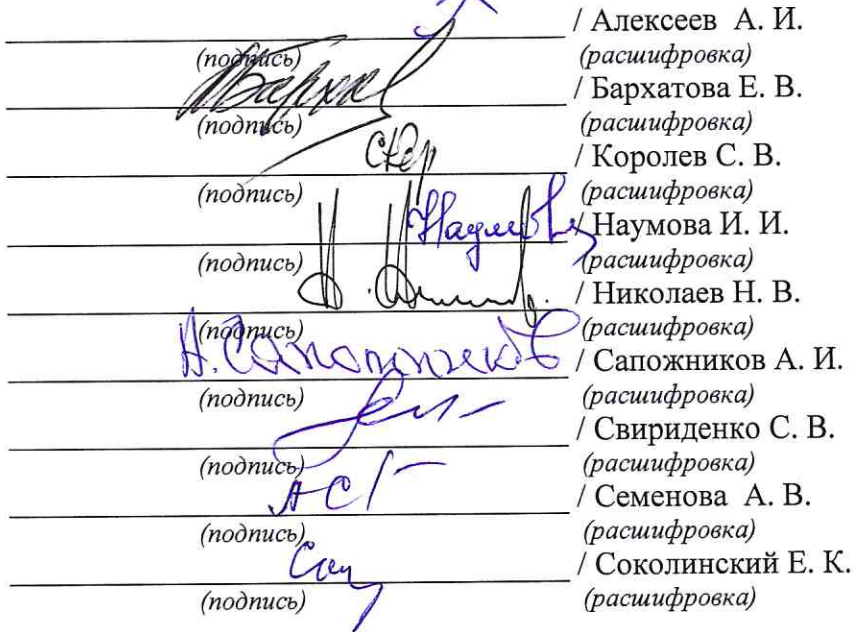 / Алексеев А. И.
(подпись) (расшифровка)
/ Бархатова Е. В.
(подпись) (расшифровка)
/ Королев С. В.
(подпись) (расшифровка)
/ Наумова И. И.
(подпись) (расшифровка)
/ Николаев Н. В.
(подпись) (расшифровка)
А. Сапожников / Сапожников А. И.
(подпись) (расшифровка)
/ Свириденко С. В.
(подпись) (расшифровка)
/ Семенова А. В.
(подпись) (расшифровка)
/ Соколинский Е. К.
(подпись) (расшифровка)